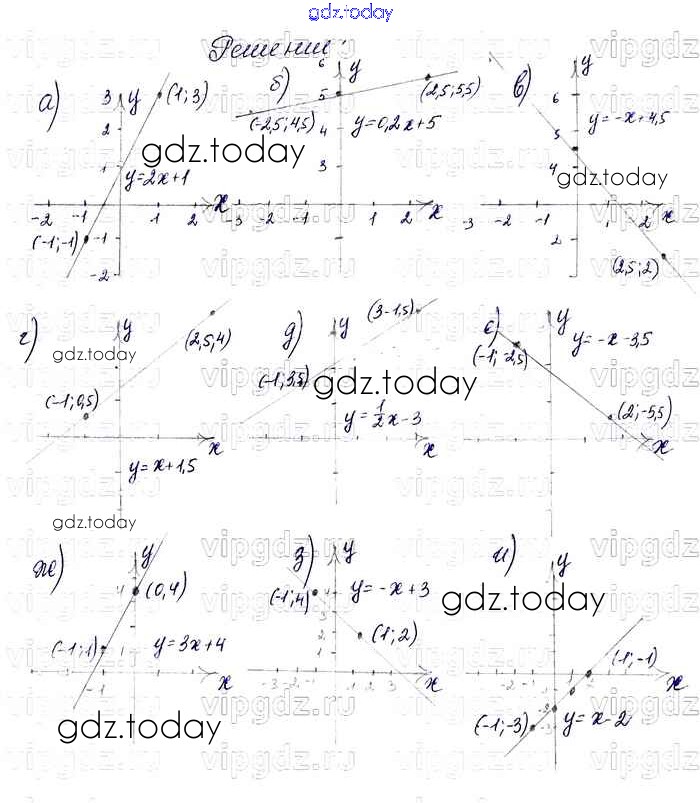 gdz.today
Решение:
а) 3 y (1; 3)
2
1
y=2x+1
-2 -1 1 2 x
(-1; -1) -1
-2
б) 6 y
5 (2,5; 5,5)
(-2,5; 4,5) 4 y=0,2x+5
3
-3 -2 -1 1 2 x
в) y
6 y=-x+4,5
5
4
-3 -2 -1 1 2 x
2
(2,5; 2)
gdz.today
gdz.today
г) y (2,5; 4)
(-1; 0,5)
x
y=x+1,5
gdz.today
д) y (3 -1,5)
(-1; 3,5)
y=1/2x-3
x
gdz.today
е) y
y=-x-3,5
(-1; -2,5)
(2; -5,5)
x
gdz.today
ж) y
4 (0,4)
(-1; 1) 1 y=3x+4
-1 x
gdz.today
з) y
(-1; 4) 4 y=-x+3
3
2 (1; 2)
1
-3 -2 -1 1 2 3 x
и) y
gdz.today
(-1; -1)
-2 -1 1 2 x
(-1; -3) y=x-2
-3
vipgdz.ru